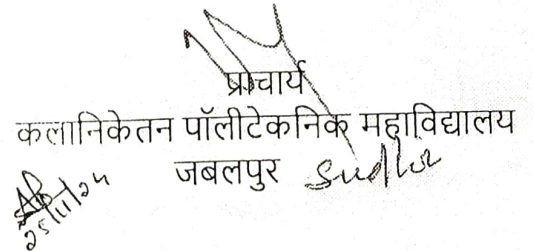 प्राचार्य
कलानिकेतन पॉलीटेकनिक महाविद्यालय
जबलपुर
25/11/24